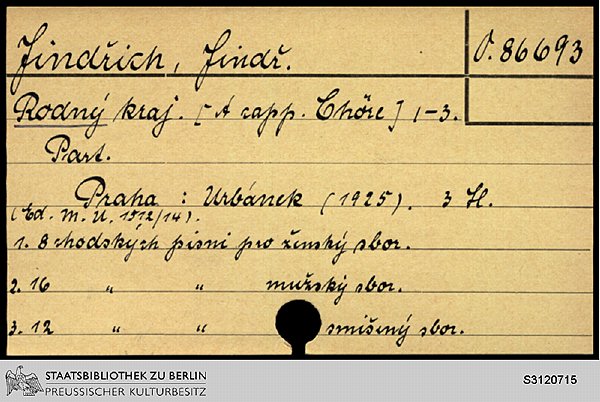 Jindřich, Jindř.
O. 86693
Rodný kraj. [A capp. Chöre] 1-3.
Part.
Praha : Urbánek (1925). 3 H.
(Ed. M. U. 1512/14).
1. 8 chodských písni pro ženský sbor.
2. 16 " " mužský sbor.
3. 12 " " smíšený sbor.
STAATSBIBLIOTHEK ZU BERLIN
PREUSSISCHER KULTURBESITZ
S3120715